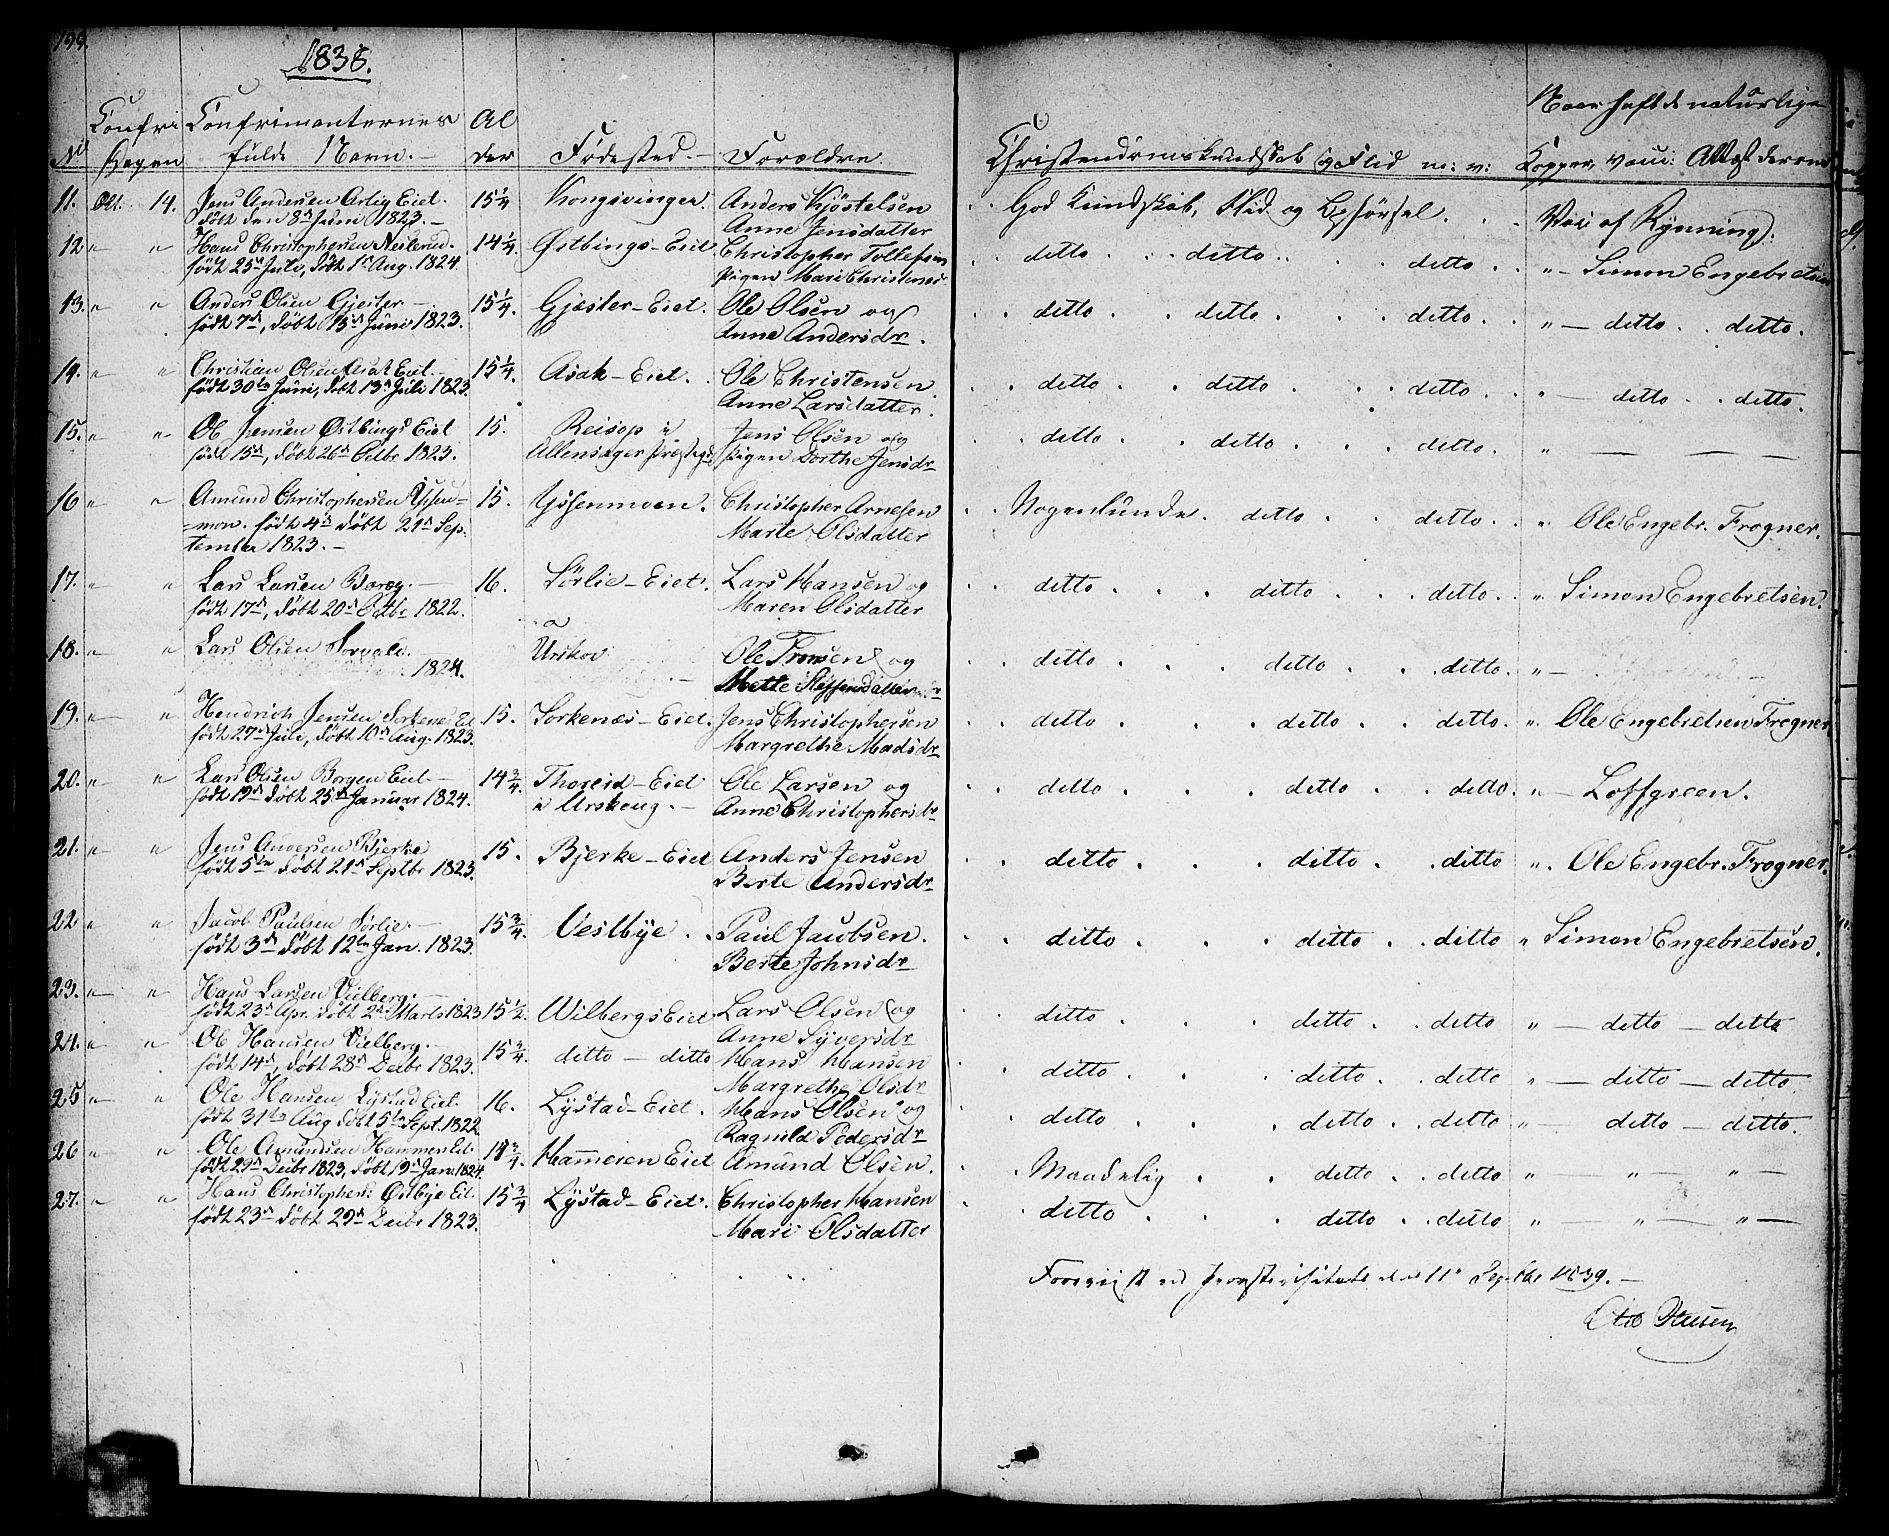 199.
1838.
No Confir Hagen Confrimanternes fulde Navn. – Al der Fødested. – Forældre.
Christendomskundskab og Flid m: v: Naar haft de naturlige Kopper, vaci: Attest derom
11. Okt. 14. Jens Andersen Eiet. 15 1/4 Kongsvinger. Anders Kjöstelsen God Kundskab, Flid og Opførsel. Vac: af Rynning:
døbt den 8de Juni 1823. – Anne Jensdatter
12 " " Hans Christophersen Nesterud. 14 1/4 Østbings-Eiet Christopher Tollefsen ditto ditto ditto " – Simon Engebretsen
født 25de Juli, døbt 1ste Aug. 1824. Pigen Mari Christensd
13. " " Anders Olsen Gjester – 15 1/4. Gjester-Eiet. Ole Olsen og ditto ditto ditto " – ditto . . ditto.
født 7de, døbt 15de Juni 1823. Anne Andersdr.
14. " " Christian Olsen Asak Eiet. 15 1/4. Asak-Eiet. Ole Christensen ditto ditto ditto " – ditto . . ditto.
født 30te Juni, døbt 13de Juli 1823. Anne Larsdatter.
15. " " Ole Jensen Østbings Eiet 15. Reisop i Jens Olsen og ditto ditto ditto. " – – –
født 15de, døbt 26de Octbr 1823. Ullensager Præstegj. Pigen Dorthe Jensdr
16 " " Amund Christophersen Yssen- 15. Yssenmoen. Christopher Arnesen Nogenlunde. ditto ditto. " Ole Engebr. Frogner.
-moen. født 4de døbt 21de Sep- Marte Olsdatter
tember 1823. –
17. " " Lars Larsen Baræg. – 16. Sørlie-Eiet. Lars Hansen og ditto ditto ditto. " Simon Engebretsen.
født 17de, døbt 20de Octbr 1822. Maren Olsdatter
18. " " Lars Olsen Sorvali. Urskov Ole Fransen og ditto ditto ditto. " –
1824. Mette Steffensdatter
19. " " Hendrich Jensen Sorkenes Ei 15. Sorkenæs-Eiet. Jens Christophersen ditto ditto ditto. " Ole Engebretsen Frogner
født 27de Juli, døbt 10de Aug. 1823. Margrethe Madsdr
20. " " Lars Olsen Borgen Eiet – 14 3/4. Thoreid-Eiet Ole Larsen og ditto ditto ditto. " – Loffgreen.
født 19de døbt 25de Januar 1824. i Urskoug. – Anne Christophersdr
21. " " Jens Andersen Bjerke 15. Bjerke-Eiet Anders Jensen ditto ditto ditto " Ole Engebr. Frogner.
født 5te døbt 21de Septbr 1823. Berte Andersdr
22 " " Jacob Paulsen Sørlie. – 15 3/4. Vestbye. Paul Jacobsen. ditto ditto ditto " Simon Engebretsen.
født 3de døbt 12te Jan. 1823. Berte Johnsdr
23. " " Hans Larsen Vielberg. – 15 1/2. Wilbergs Eiet Lars Olsen og ditto ditto ditto " – ditto – ditto
født 23de Apr. døbt 2de Marts 1823 Anne Syversdr
24. " " Ole Hansen Vielberg. – 15 3/4. ditto – ditto Hans Hansen ditto ditto ditto. " – ditto – ditto.
født 14de, døbt 28de Decbr 1823. Margrethe Olsdr
25 " " Ole Hansen Lystad Eiet. 16. Lystad-Eiet. Hans Olsen og ditto ditto ditto " – ditto – ditto.
født 31te Aug døbt 5te Sept. 1822 Ragnild Pedersdr
26 " " Ole Amundsen Hammeren Eiet. 14 3/4. Hammeren Eiet Amund Olsen. Maadelig ditto ditto " " – " –
født 29de Decbr 1823, døbt 19de Jan. 1824.
27. " " Hans Christophers: Østbye Ei. 15 3/4 Lystad-Eiet. Christopher Hansen ditto ditto ditto " " – " –
født 23de døbt 29de Decbr 1823. Mari Olsdatter
Foreviist ved Provstevisitats den 11 Septbr 1839. –